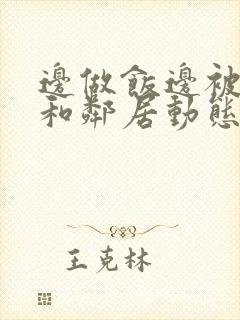 邊做飯邊被
和鄰居動態
王克林